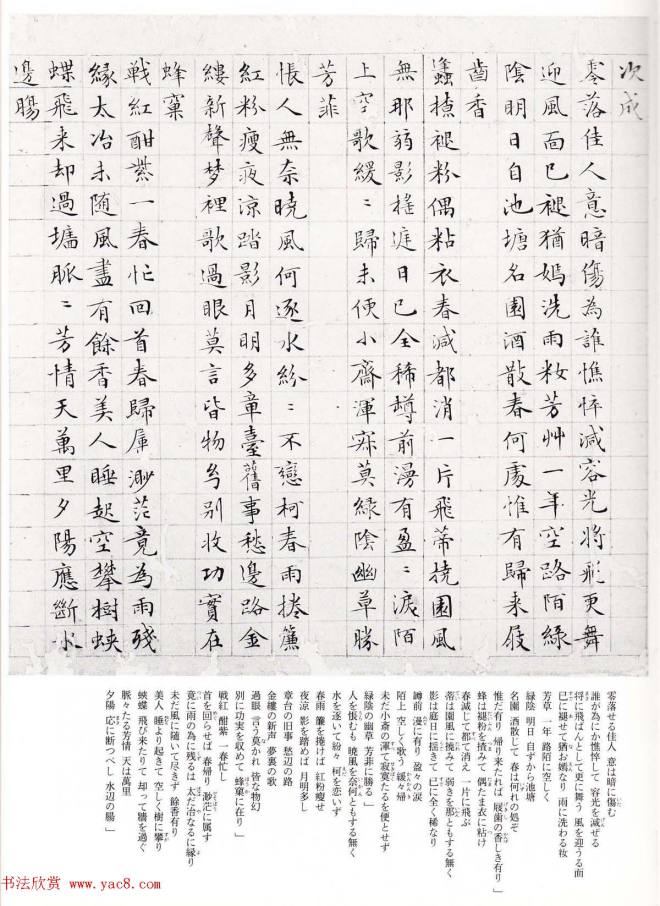 次成
零落佳人意暗傷為誰憔悴減容光将飛更舞
迎風面已褪猶嫣洗雨粧芳艸一年空路陌緑
陰明日自池塘名園酒散春何處惟有歸来屐
齒香
蠭揸褪粉偶粘衣春減都消一片飛蒂撓園風
無那弱影搖庭日已全稀樽前漫有盈〻淚陌
上空歌緩〻歸未便小齋渾寂莫緑陰幽草勝
芳菲
悵人無奈曉風何逐水紛〻不戀柯春雨捲簾
紅粉瘦夜涼踏影月明多章臺舊事愁邊路金
縷新聲梦裡歌過眼莫言皆物幻別收功實在
蜂窠
戦紅酣紫一春忙回首春歸屬渺茫竟為雨殘
縁太冶未随風盡有餘香美人睡起空攀樹蛺
蝶飛来却過墻脈〻芳情天萬里夕陽應斷水
邊腸
零落せる佳人 意は暗に傷む
誰が為にか憔悴して 容光を減ぜる
将に飛ばんとして更に舞う 風を迎うる面
已に褪せて猶お嫣なり 雨に洗わる粧
芳草 一年 路陌に空しく
緑陰 明日 自ずから池塘
名園 酒散じて 春は何れの処ぞ
惟だ有り 帰り来たれば 屐歯の香しき有り」
蜂は褪粉を揸み 偶たま衣に粘け
春減じて都て消え 一片に飛ぶ
蒂は園風に撓みて 弱きを那ともする無く
影は庭日に揺きて 已に全く稀なり
罇前 漫に有り 盈々の涙
陌上 空しく歌う 緩々帰
未だ小斎の渾て寂寞たるを便とせず
緑陰の幽草 芳菲に勝る」
人を悵むも 暁風を奈何ともする無く
水を逐いて紛々 柯を恋いず
春雨 簾を捲けば 紅粉瘦せ
夜涼 影を踏めば 月明多し
章台の旧事 愁辺の路
金縷の新声 夢裏の歌
過眼 言う莫かれ 皆な物幻
別に功実を収めて 蜂窠に在り」
戦紅 酣紫 一春忙し
首を回らせば 春帰り 渺茫に属す
竟に雨の為に残るは 太だ冶なるに縁り
未だ風に随いて尽きず 餘香有り
美人 睡より起きて 空しく樹に攀り
蛺蝶 飛び来たりて 却って牆を過ぐ
脈々たる芳情 天は万里
夕陽 応に断つべし 水辺の腸」
书法欣赏 www.yac8.com